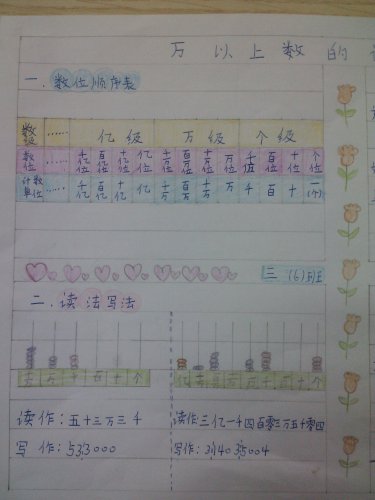 万以上数的
一.数位顺序表
数级 …… 亿级 万级 个级
数位 …… 千亿位 百亿位 十亿位 亿位 千万位 百万位 十万位 万位 千位 百位 十位 个位
计数单位 …… 千亿 百亿 十亿 亿 千万 百万 十万 万 千 百 十 一(个)
三(6)班王
二.读法写法
十万千百十个 亿千百十万千百十个
读作:五十三万三千 读作:三亿一千四百零三万五千零四
写作:533000 写作:314035004